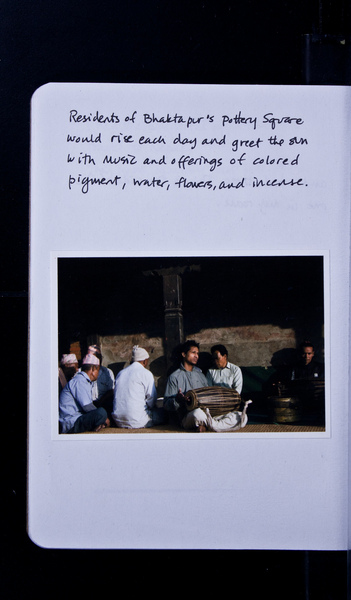 Residents of Bhaktapur's Pottery Square
would rise each day and greet the sun
with music and offerings of colored
pigment, water, flowers, and incense.